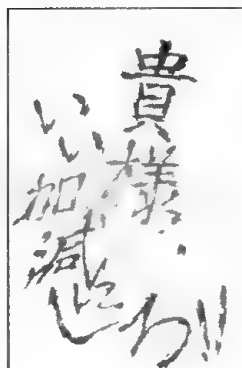 貴様・・
いい加減にしろ!!